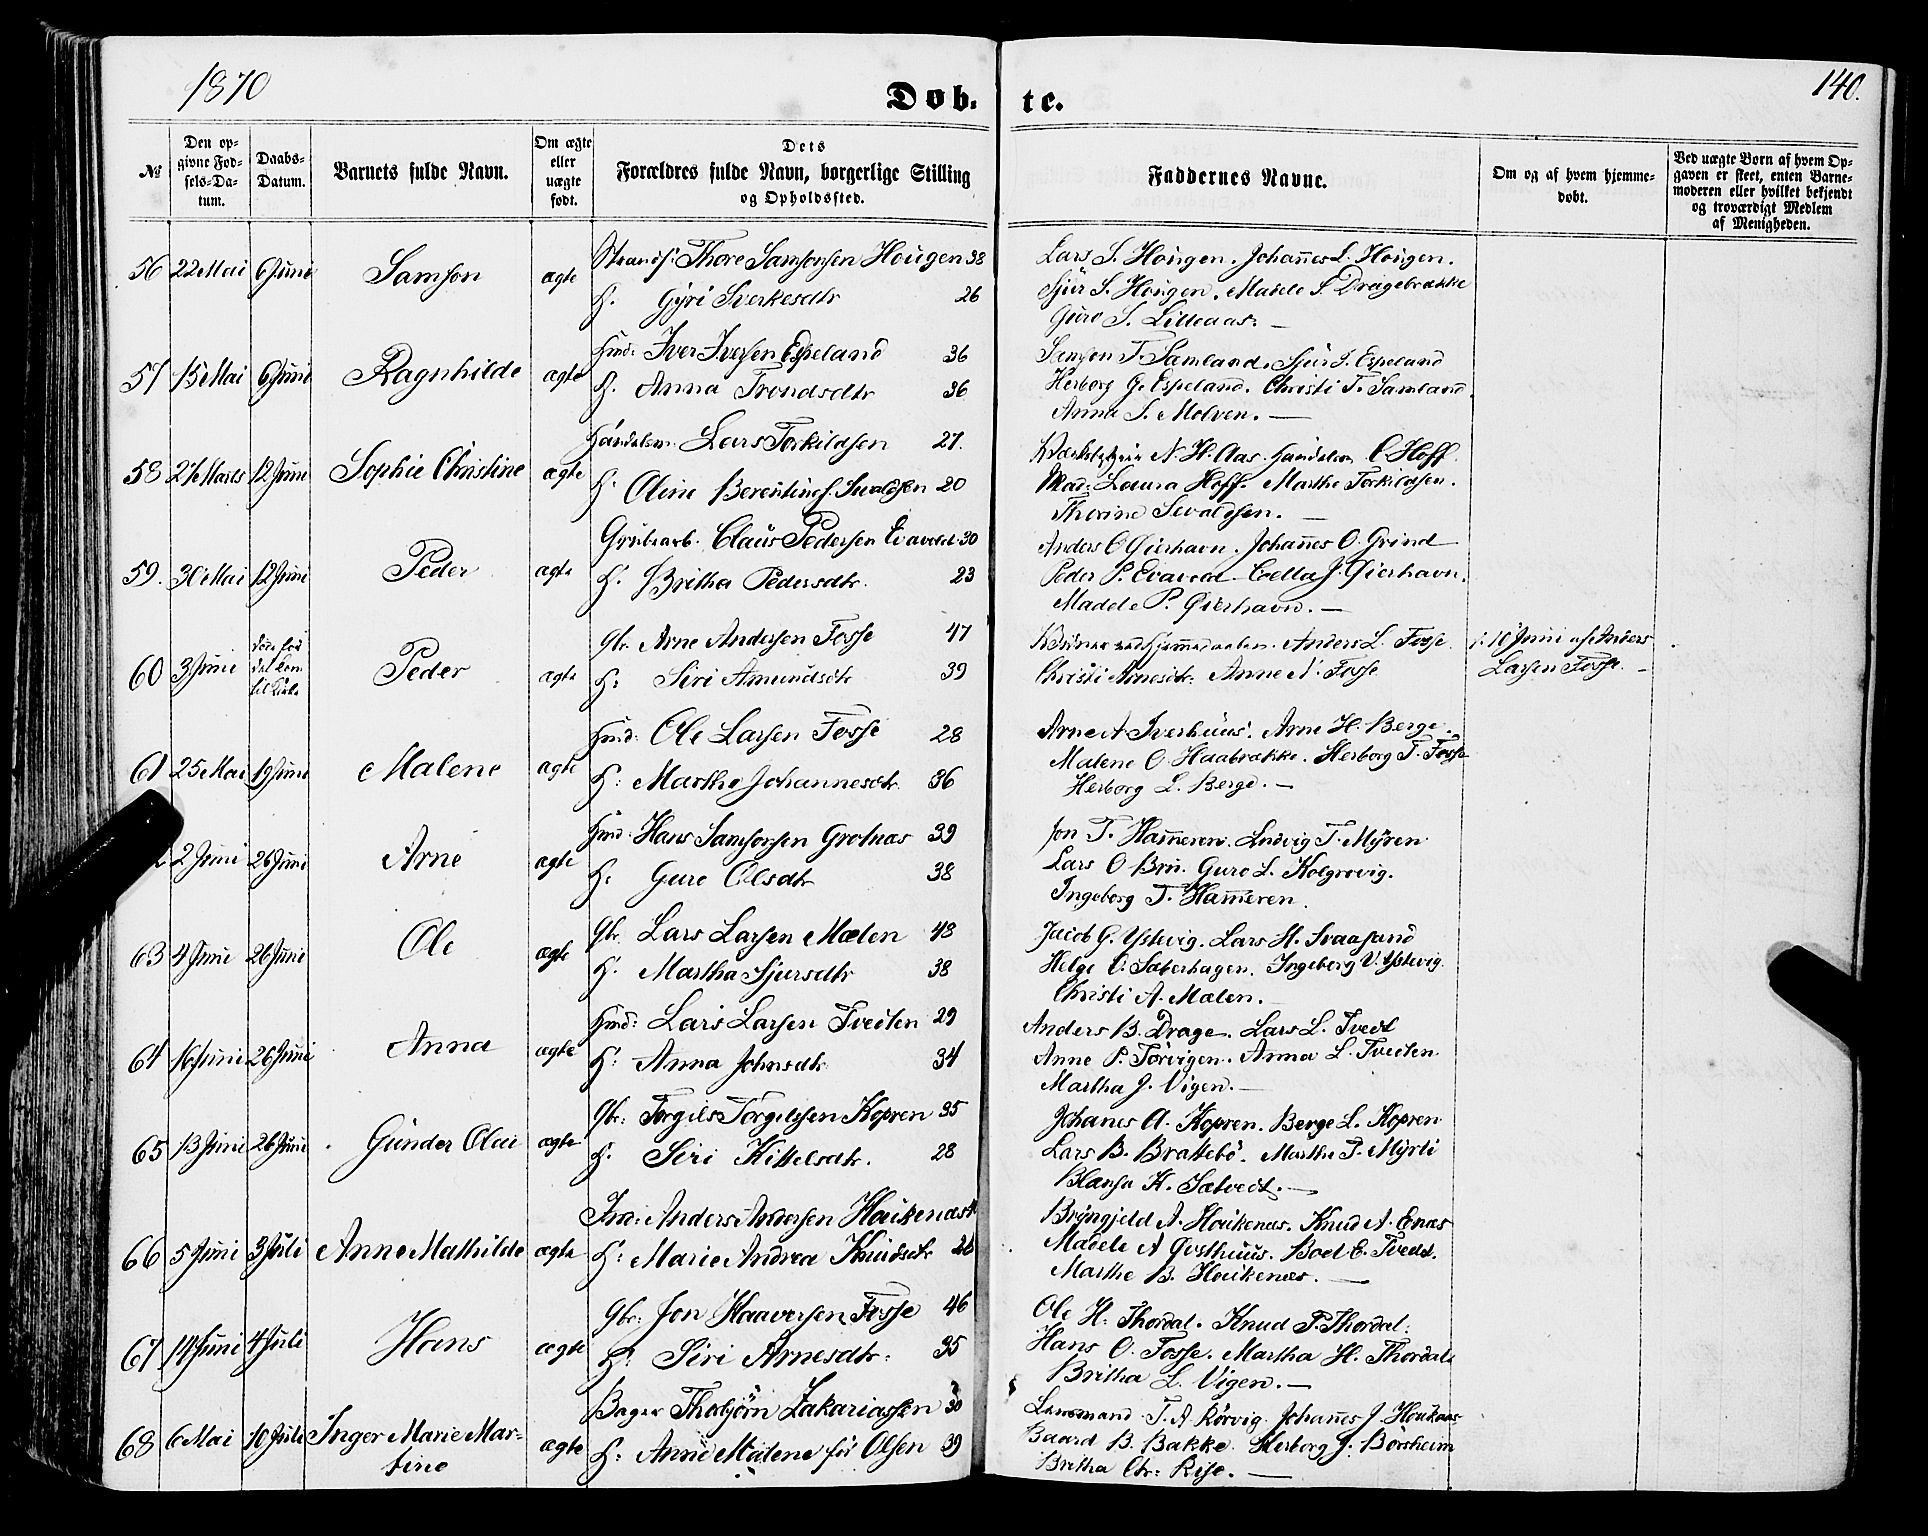 1870
Døb- te.
140.
№
Den op-
givne Fød-
sels-Da-
tum.
Daabs-
Datum.
Barnets fulde Navn.
Om ægte
eller
uægte
født.
Dets
Forældres fulde Navn, borgerlige Stilling
og Opholdssted.
Faddernes Navne.
Om og af hvem hjemme-
døbt.
Ved uægte Børn af hvem Op-
gaven er skeet, enten Barne-
moderen eller hvilket bekjendt
og troværdigt Medlem
af Menigheden.
56 22 Mai 6 Juni Samson ægte
Strands: Thore Samsonsen Hougen 38
H. Gyri Sverkesdtr 26
Lars S. Hougen. Johannes L. Hougen.
Sjur S. Hougen. Madele S. Dragebrække
Guro S. Lilleaas. —
57 15 Mai 6 Juni Ragnhilde ægte
Huusd: Iver Iversen Espeland 36
H. Anna Trondsdtr 36
Samson T. Samland. Sjur I. Espeland
Herborg G. Espeland. Christi T. Samland.
Anna S. Molven. —
58 27 Marts 12 Juni Sophie Christine ægte
Handelsm. Lars Torkildsen 27.
H. Oline Berentine f. Sivaldsen 20
N. H. Aas. Handelsm C. Hoff.
Mad: Laura Hoff. Marthe Torkildsen.
Thorine Sevaldsen. —
59. 30 Mai 12 Juni Peder ægte
Grubearb. Claus Pedersen Eiavold 30
H. Britha Pedersdtr. 23
Anders O Gierhavn. Johannes O. Grind
Peder P. Eiavold. Cella J. Gierhavn.
Madele P. Gierhavn. —
60 3 Juni
døde før
det kom
til Kirke
Peder ægte
Gbr. Arne Andersen Fosse 47
H: Siri Amundsdtr 39
Anders L. Fosse.
Christi Arnesdtr. Anne N. Fosse
10 Juni af Anders
Larsen Fosse. —
61 25 Mai 19 Juni Malene ægte
Huusd: Ole Larsen Fosse 28
H: Marthe Johannesdtr. 36
Arne A Tverhuus. Arne H. Berge.
Malene O. Haabrække. Herborg T. Fosse
Herborg L. Berge. —
2 Juni 26 Juni Arne ægte
Huusd: Hans Samsonsen Grotnæs 39
H. Guro Olsdtr 38
Jon T. Hammeren. Ludvig T. Myren
Lars O Bru. Guro L. Kolgrovig.
Ingeborg T. Hammeren.
63 4 Juni 26 Juni Ole ægte
Gbr. Lars Larsen Mælen 43
H. Martha Sjursdtr 38
Jacob G. Ystevig. Lars H. Svaasand
Helge O. Saberhagen. Ingeborg V. Ystevig.
Christi A. Mælen. —
64 16 Juni 26 Juni Anna ægte
Huusd: Lars Larsen Tveiten 29
H: Anna Johnsdtr 34
Anders B. Drage. Lars L. Tvedt
Anne P. Torvigen. Anna L. Tveiten.
Martha J. Vigen. —
65 13 Juni 26 Juni Gunder Olai ægte
Gbr: Torgils Torgilssen Kopren 35
H. Siri Kittelsdtr. 28
Johannes A. Kopren. Berge L. Kopren
Lars B. Brattebø. Marthe T. Myrli
Blansa K. Sætvedt. —
66 5 Juni 3 Juli Anne Mathilde ægte
Ind: Anders Andersen Houkenæs
H: Marie Andrea Knudsdtr 26
Bryngjeld A. Houkenæs. Knud A. Enæs
Madele A Gosthuus. Boel E. Tvedt.
Marthe B. Houkenæs. —
67 14 Juni 4 Juli Hans ægte
Gbr: Jon Haaversen Fosse 46
H: Siri Arnesdtr. 35
Ole H. Thordal. Knud P. Thordal.
Hans O. Fosse. Martha H. Thordal.
Britha L. Vigen. —
68 6 Mai 10 Juli Inger Marie Mar-
tine
ægte
Bager Thorbjörn Zakariassen 30
H: Anne Malene før Olsen 39
Lensmand T. A. Rörvig. Johannes J. Houkaas
Baard B. Bakke. Herborg J. Börsheim
Britha Chr: Rise. —